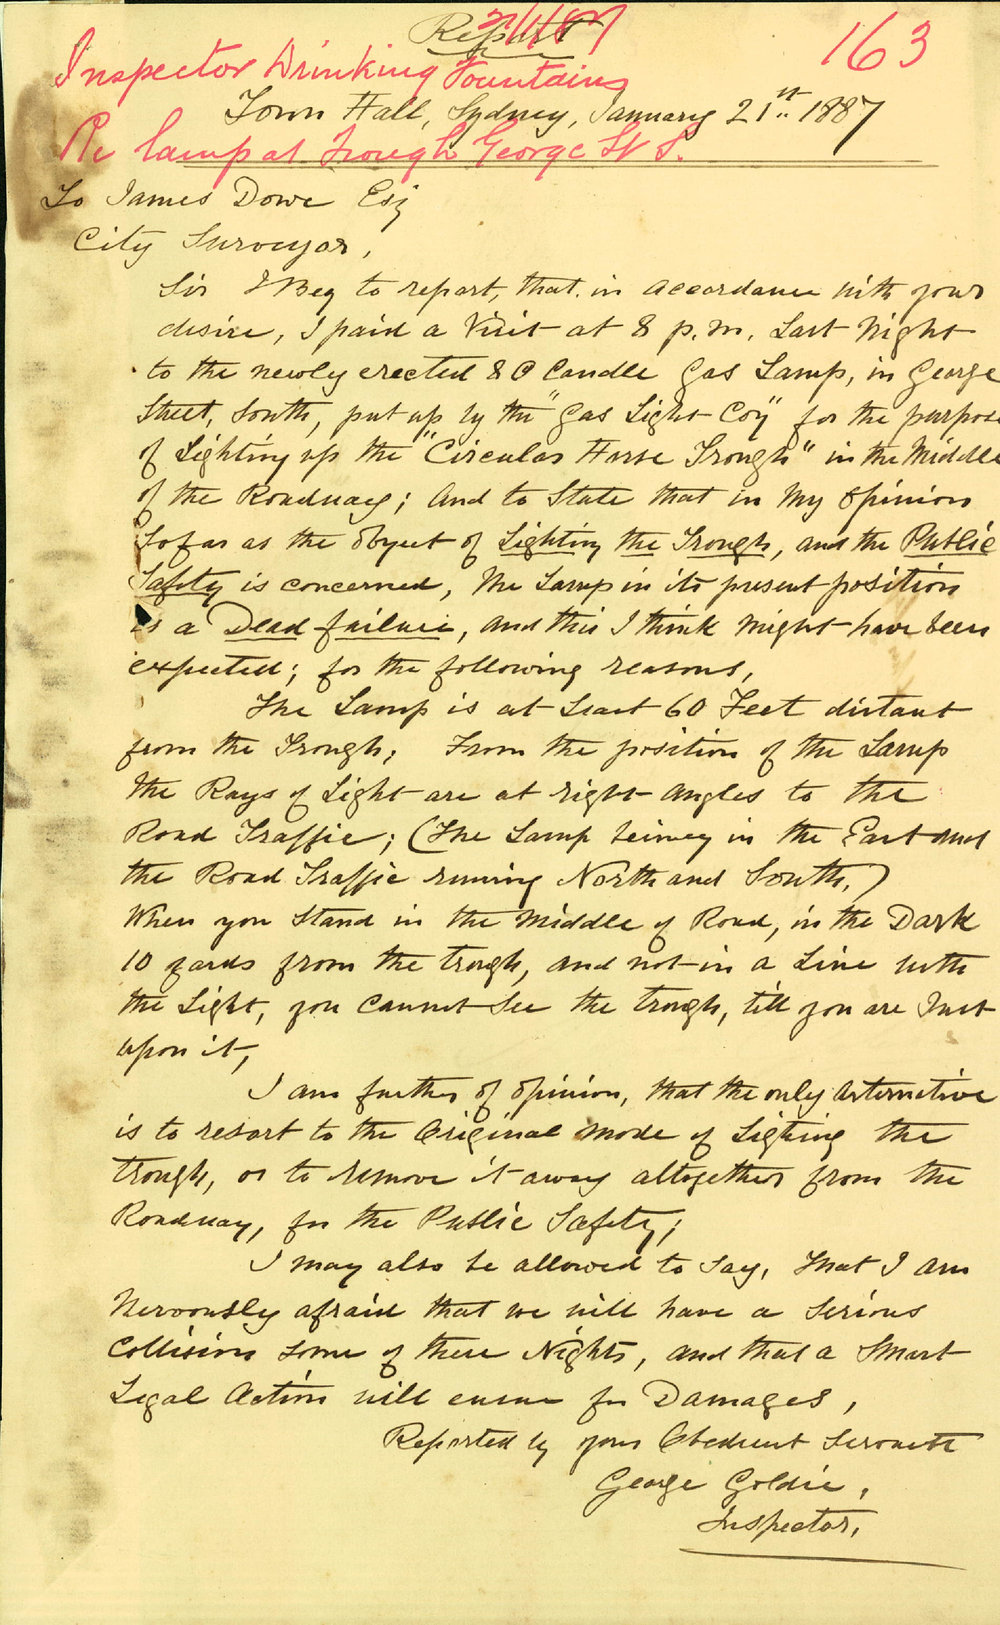 Report
163
Inspector Drinking Fountains
Town Hall, Sydney, January 21st 1887
Re lamp at Trough George St S.
To James Dowe Esq
City Surveyor,
Sir I Beg to report, that in accordance with your
desire, I paid a Visit at 8 p.m. Last Night
to the newly erected 80 Candle Gas Lamp, in George
Street, South, put up by the "Gas Light Coy" for the purpose
of Lighting up the "Circular Horse Trough" in the Middle
of the Roadway; and to State that in My Opinion
So far as the object of Lighting the Trough, and the Public
Safety is concerned, the Lamp in its present position
is a Dead failure, and this I think Might have been
expected; for the following reasons,
The Lamp is at Least 60 Feet distant
from the Trough; From the position of the Lamp
the Rays of Light are at right angles to the
Road Traffic; (The Lamp being in the East and
the Road Traffic running North and South,)
When you Stand in the Middle of Road, in the Dark
10 yards from the trough, and not in a Line with
the Light, you cannot See the trough, till you are Just
upon it,
I am further of opinion, that the only alternative
is to resort to the Original Mode of Lighting the
trough, or to remove it away altogether from the
Roadway, for the Public Safety;
I may also be allowed to Say, that I am
Nervously afraid that we will have a Serious
Collision Some of these Nights, and that a Smart
Legal Action will ensue for Damages,
Reported by your Obedient Servant
George Goldie,
Inspector,